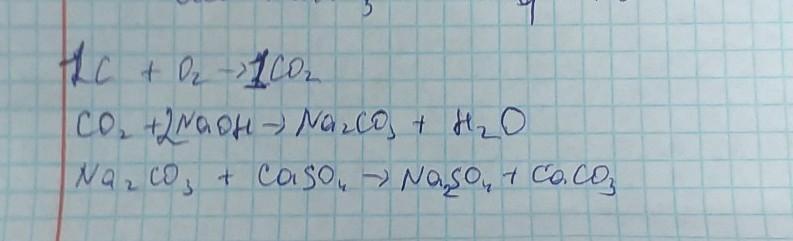 1C + O₂ → 1CO₂
CO₂ + 2NaOH → Na₂CO₃ + H₂O
Na₂CO₃ + CaSO₄ → Na₂SO₄ + CaCO₃